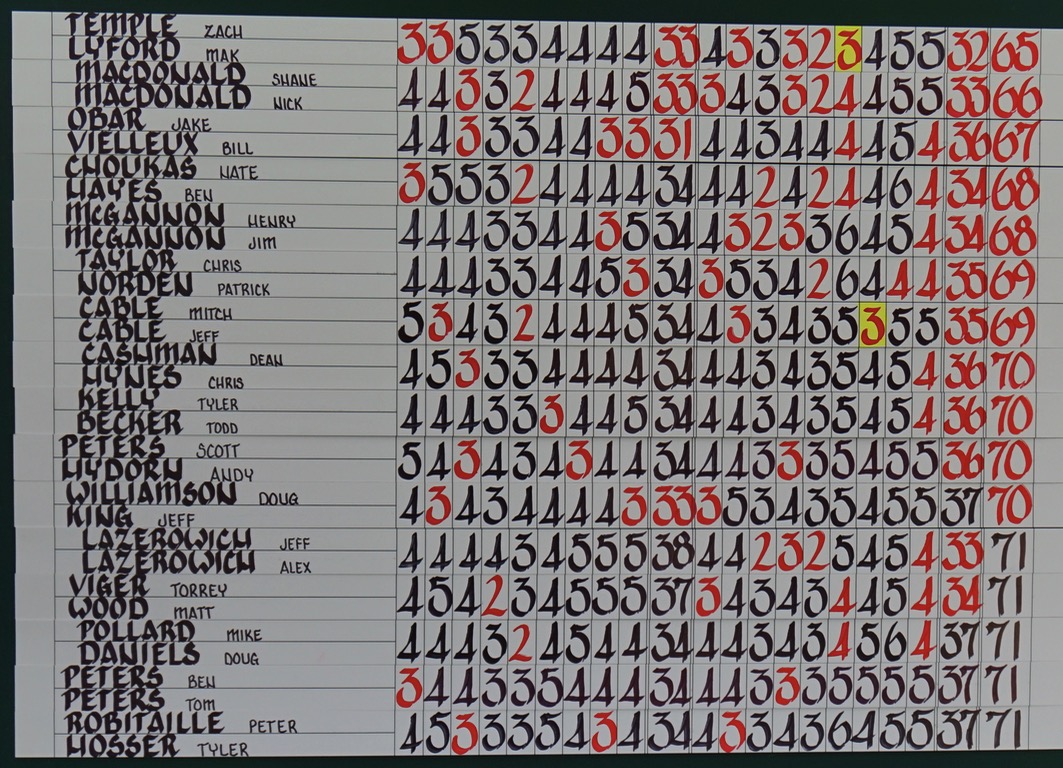 TEMPLE ZACH
LYFORD MAK
3 3 5 3 3 4 4 4 4 33 4 3 3 3 2 3 4 5 5 32 65
MACDONALD SHANE
MACDONALD NICK
4 4 3 3 2 4 4 4 5 33 3 4 3 3 2 4 4 5 5 33 66
OBAR JAKE
VIELLEUX BILL
4 4 3 3 3 4 4 3 3 31 4 4 3 4 4 4 4 5 4 36 67
CHOUKAS NATE
HAYES BEN
3 5 5 3 2 4 4 4 4 34 4 4 2 4 2 4 4 6 4 34 68
MCGANNON HENRY
MCGANNON JIM
4 4 4 3 3 4 4 3 5 34 4 3 2 3 3 6 4 5 4 34 68
TAYLOR CHRIS
NORDEN PATRICK
4 4 4 3 3 4 4 5 3 34 3 5 3 4 2 6 4 4 4 35 69
CABLE MITCH
CABLE JEFF
5 3 4 3 2 4 4 4 5 34 4 3 3 4 3 5 3 5 5 35 69
CASHMAN DEAN
HYNES CHRIS
4 5 3 3 3 4 4 4 4 34 4 4 3 4 3 5 4 5 4 36 70
KELLY TYLER
BECKER TODD
4 4 4 3 3 3 4 4 5 34 4 4 3 4 3 5 4 5 4 36 70
PETERS SCOTT
HYDORN ANDY
5 4 3 4 3 4 3 4 4 34 4 4 3 3 3 5 4 5 5 36 70
WILLIAMSON DOUG
KING JEFF
4 3 4 3 4 4 4 4 3 33 3 5 3 4 3 5 4 5 5 37 70
LAZEROWICH JEFF
LAZEROWICH ALEX
4 4 4 4 3 4 5 5 5 38 4 4 2 3 2 5 4 5 4 33 71
VIGER TORREY
WOOD MATT
4 5 4 2 3 4 5 5 5 37 3 4 3 4 3 4 4 5 4 34 71
POLLARD MIKE
DANIELS DOUG
4 4 4 3 2 4 5 4 4 34 4 4 3 4 3 4 5 6 4 37 71
PETERS BEN
PETERS TOM
3 4 4 3 3 5 4 4 4 34 4 4 3 3 3 5 5 5 5 37 71
ROBITAILLE PETER
HOSSER TYLER
4 5 3 3 3 5 4 3 4 34 4 3 3 4 3 6 4 5 5 37 71